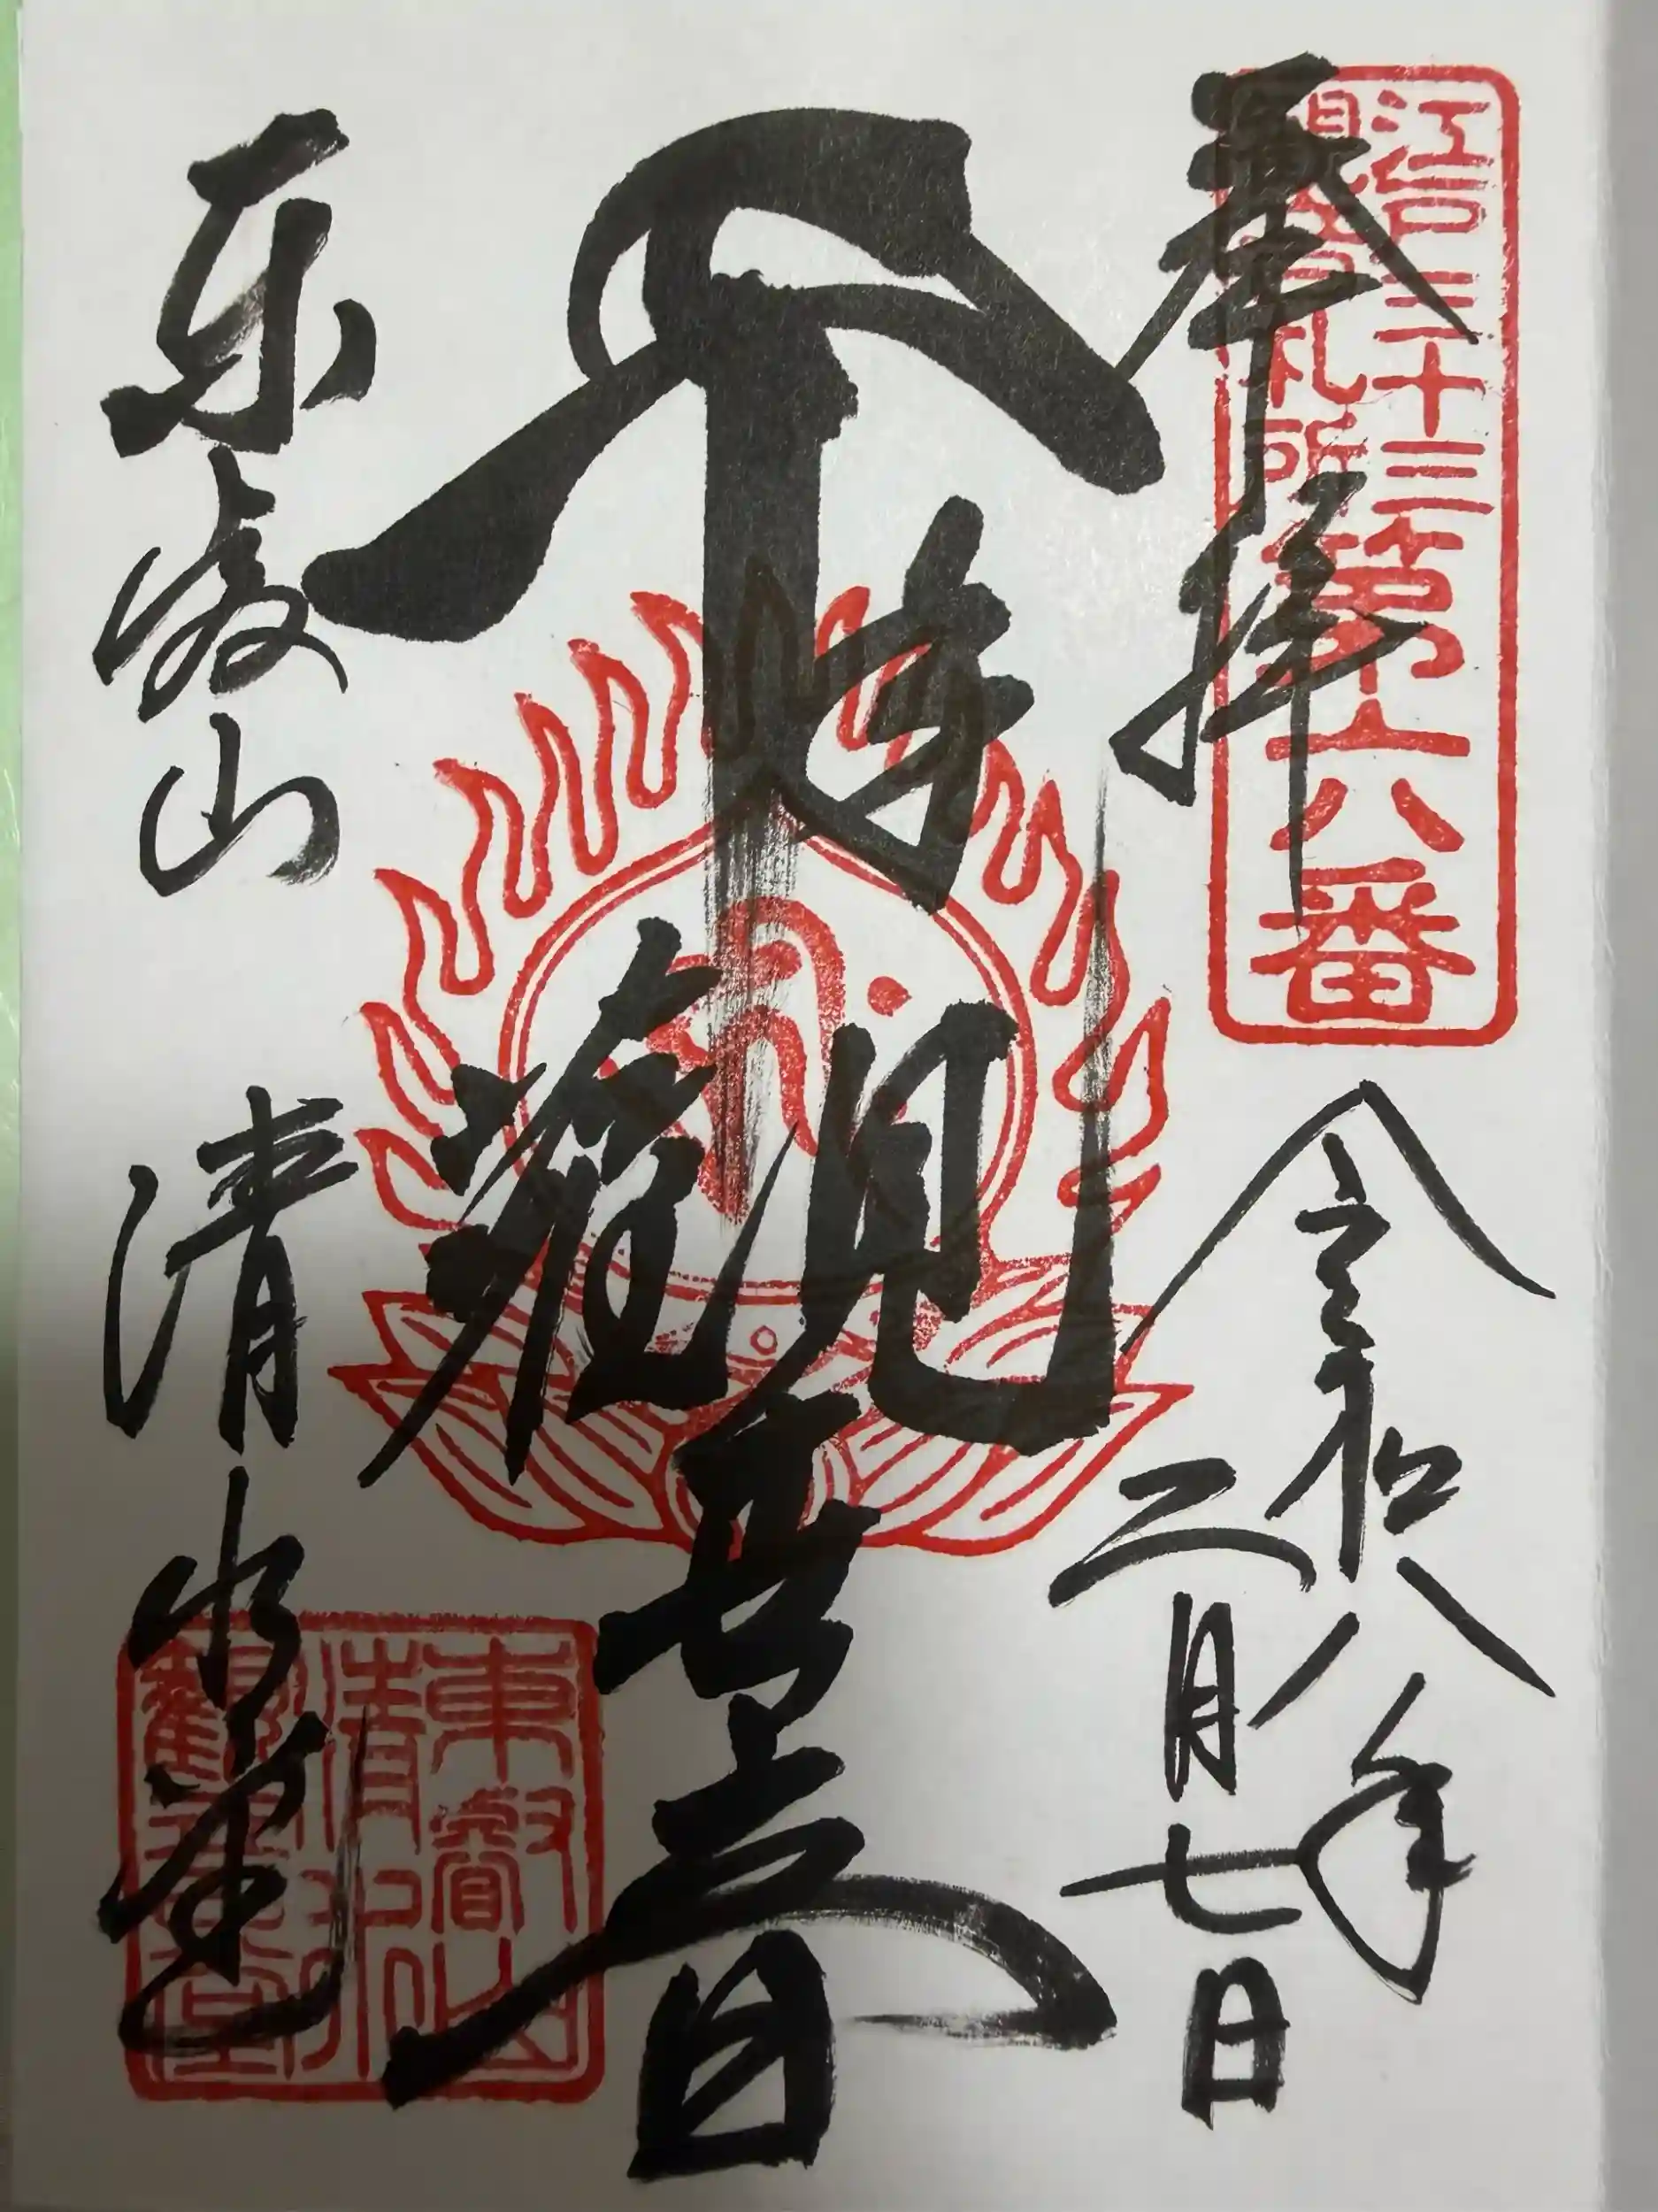 江戸三十三
観音札所
第六番
奉拝
令和八年
二月七日
千手觀世音
東叡山
清水堂
東叡山
清水
觀音堂